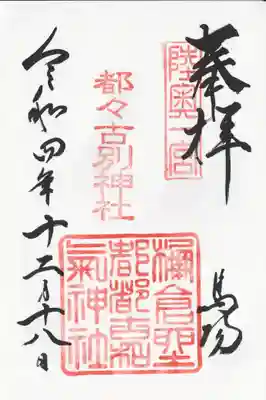 奉拝
陸奥一宮
馬場
都々古別神社
棚倉聖
都都古和
氣神社
令和四年十二月十八日